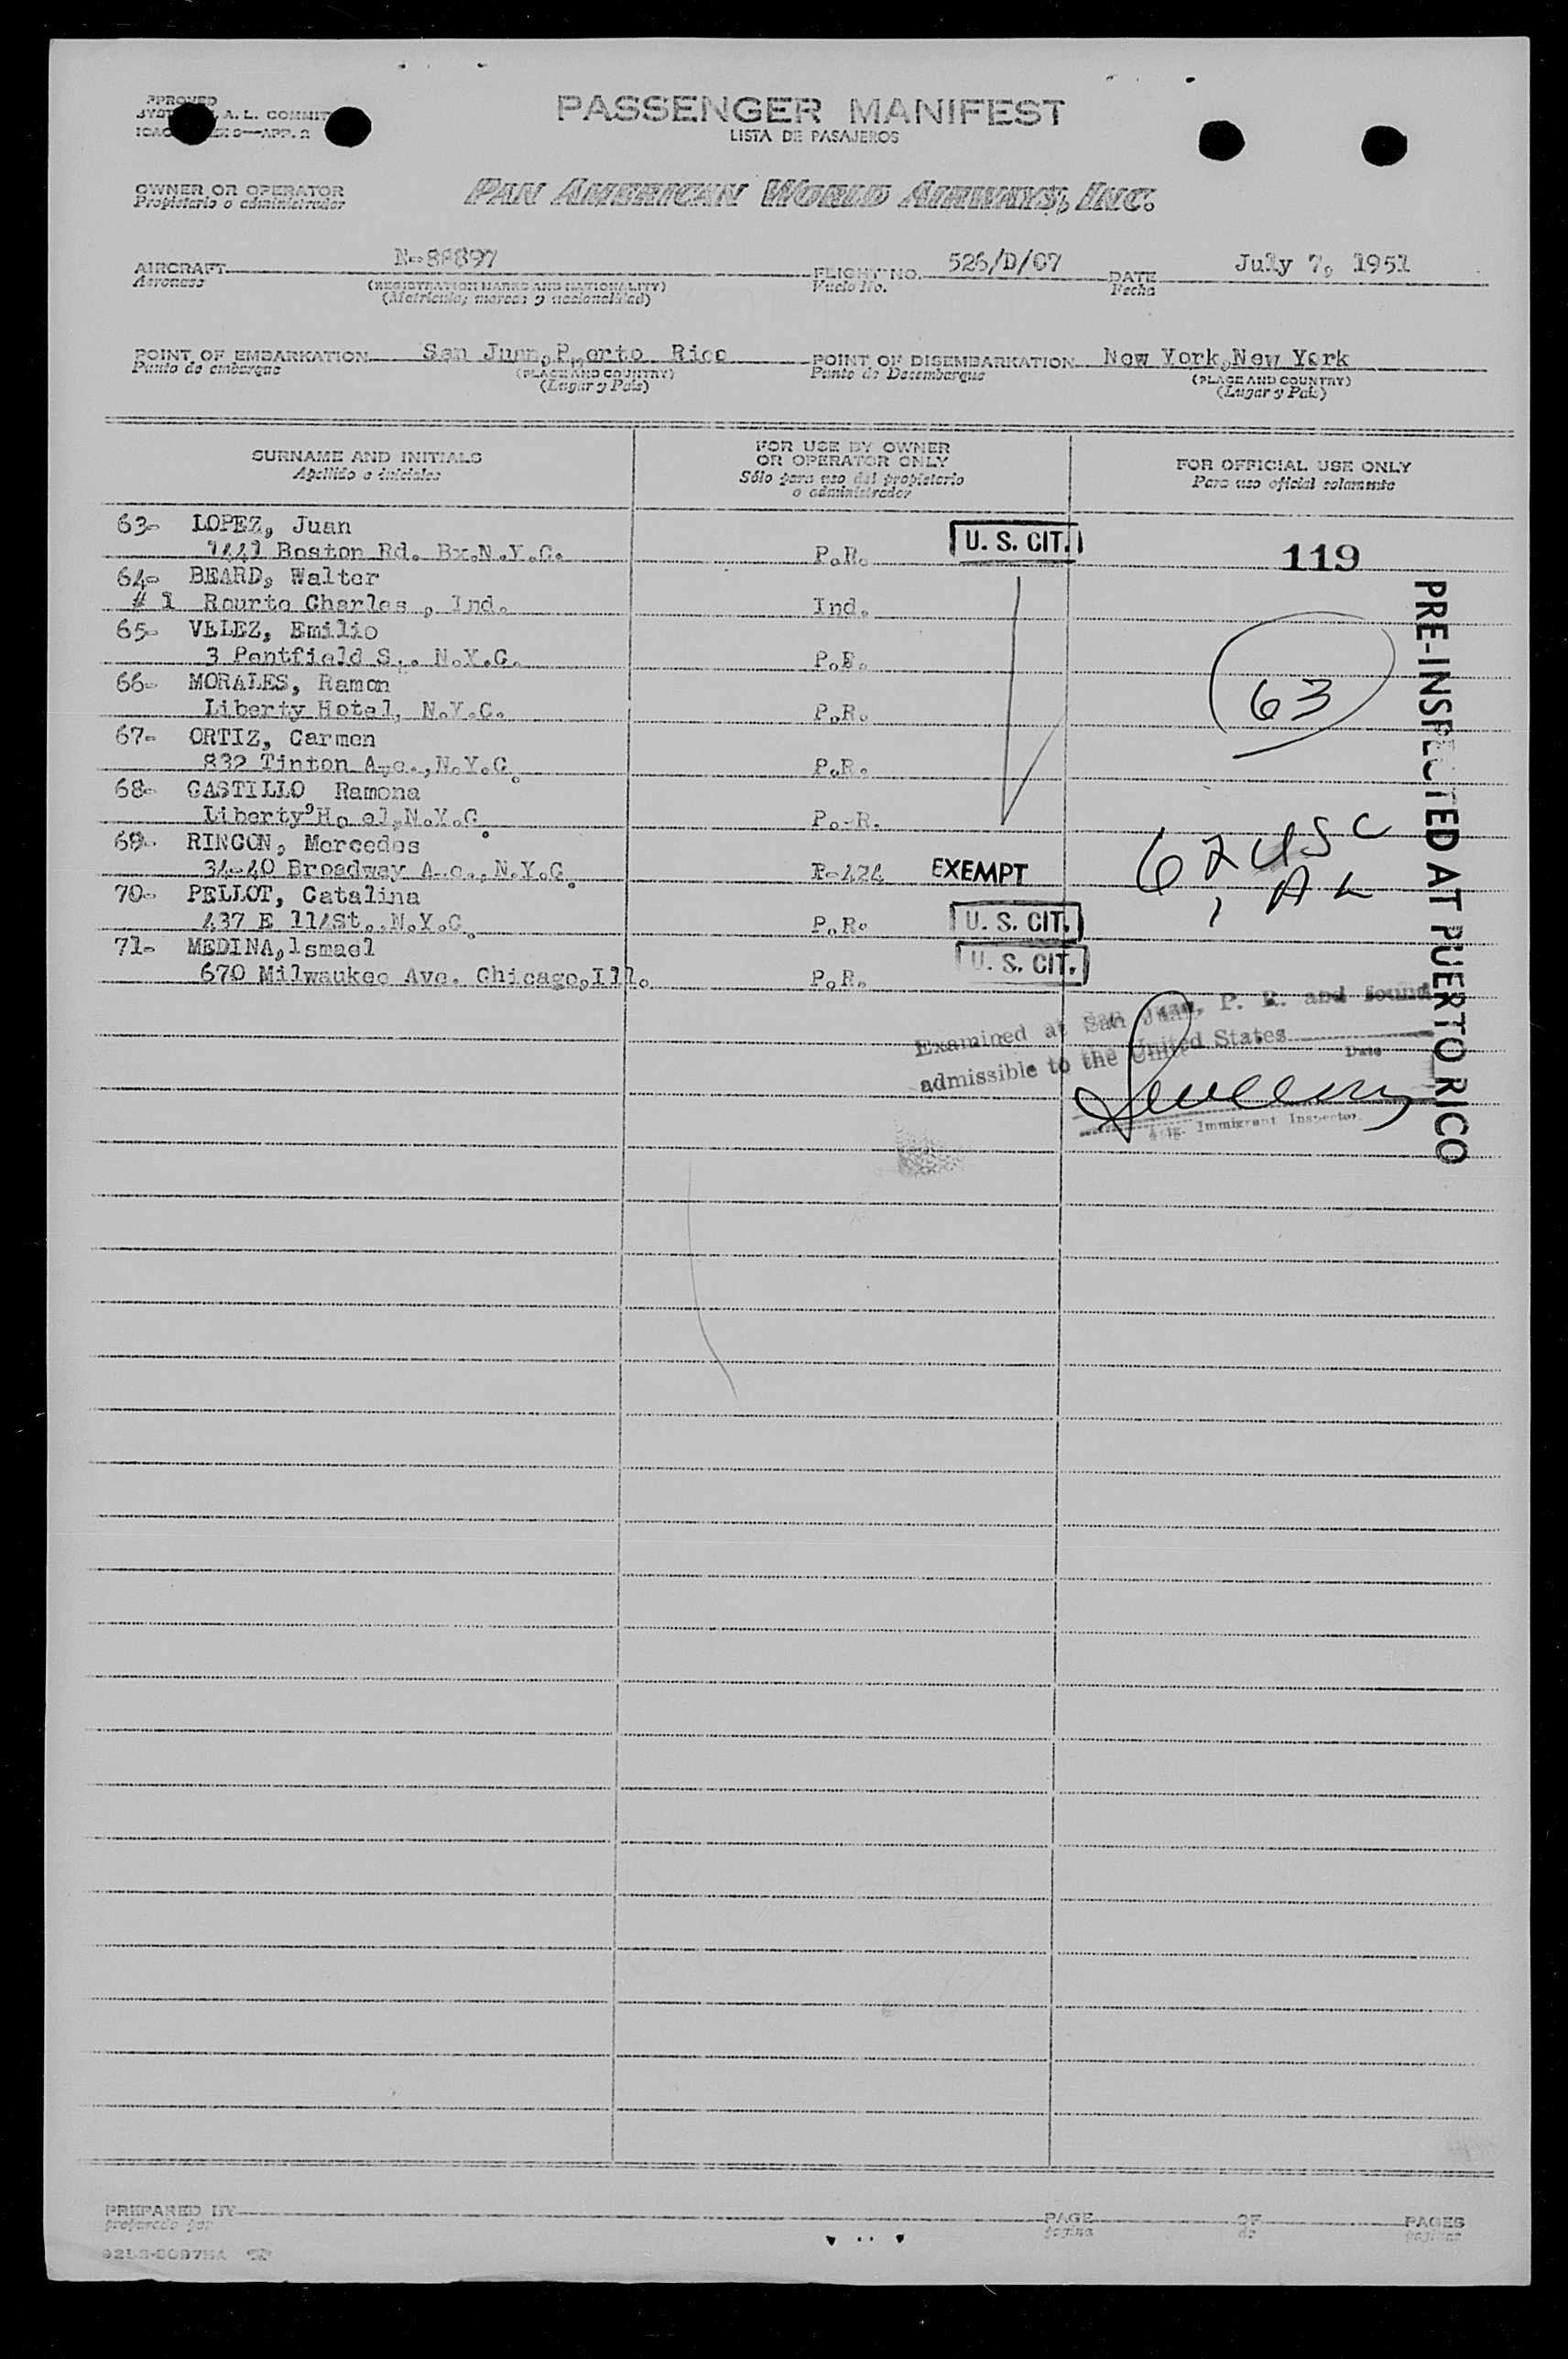 PASSENGER MANIFEST
LISTA DE PASAJEROS
OWNER OR OPERATOR
Propietario o administrador
PAN AMERICAN WORLD AIRWAYS, INC.
AIRCRAFT N-88897 FLIGHT NO. 526/D/07 DATE July 7, 1951
Aeronave (REGISTRATION MARKS AND NATIONALITY) Vuelo No. Fecha
(Matricula; marcas y nacionalidad)
POINT OF EMBARKATION San Juan, P erto Rico POINT OF DISEMBARKATION New York, New York
Punto de embarque (PLACE AND COUNTRY) Punto de Desembarque (PLACE AND COUNTRY)
(Lugar y País) (Lugar y País)
SURNAME AND INITIALS
Apellido e iniciales
FOR USE BY OWNER
OR OPERATOR ONLY
Sólo para uso del propietario
o administrador
FOR OFFICIAL USE ONLY
Para uso oficial solamente
63- LOPEZ, Juan
1441 Boston Rd. Bx.N.Y.C. P.R. U. S. CIT. 119
64- BEARD, Walter
# 1 Rourto Charles , Ind. Ind.
65- VELEZ, Emilio
3 Pentfield S.. N.Y.C. P.R.
66- MORALES, Ramon
Liberty Hotel, N.Y.C. P.R.
63
67- ORTIZ, Carmen
832 Tinton A e., N.Y.C. P.R.
68- CASTILLO, Ramona
Liberty H el, N.Y.C. P.-R.
69- RINCON, Mercedes
34-40 Broadway A e., N.Y.C. R-424 EXEMPT
62 USC
1 AL
70- PELLOT, Catalina
437 E 114St., N.Y.C. P.R. U. S. CIT.
71- MEDINA, lsmael
670 Milwaukee Ave. Chicago, Ill. P.R. U. S. CIT.
PRE-INSPECTED AT PUERTO RICO
Examined at San Juan, P. R. and found
admissible to the United States
Date
Immigrant Inspector
PREPARED BY PAGE OF PAGES
preparado por página de páginas